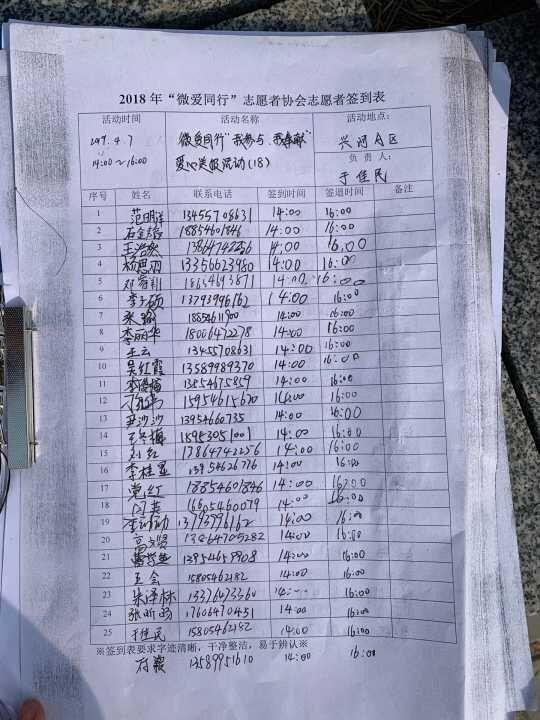 2018 年 “微爱同行” 志愿者协会志愿者签到表
活动时间 活动名称 活动地点：
4.7 微爱同行“我参与、我奉献” 兴河
14:00～16:00 爱心 活动(18) 负 责 人：
于佳民
序号 姓名 联系电话 签到时间 签退时间 备注
1 范明洋 13455708631 14:00 16:00
2 18854601846 14:00 16:00
3 王浩然 13864742256 14:00 16:00
4 杨思羽 13356623980 14:00 16:00
5 14:00 16:00
6 李子硕 13793996162 14:00 16:00
7 14:00 16:00
8 李丽华 18006472278 14:00 16:00
9 王云 13455708631 14:00 16:00
10 吴红霞 13589989370 14:00 16:00
11 13854675859 14:00 16:00
12 15954615670 14:00 16:00
13 尹沙沙 13954660735 14:00 16:00
14 王冬梅 14:00 16:00
15 刘红 13864742256 14:00 16:00
16 李桂 14:00 16:00
17 党红 18854601846 14:00 16:00
18 14:00 16:00
19 14:00 16:00
20 14:00 16:00
21 13954659908 14:00 16:00
22 王会 15805462182 14:00 16:00
23 朱泽林 16:00
24 张昕 17606470451 14:00 16:00
25 于佳民 15805462182 14:00 16:00
※签到表要求字迹清晰，干净整洁，易于辨认※
13589951610 14:00 16:00